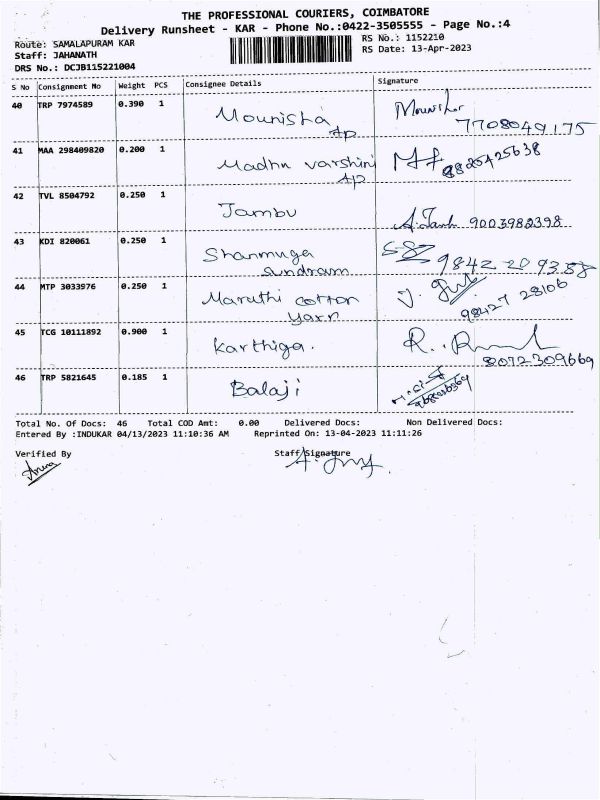 THE PROFESSIONAL COURIERS, COIMBATORE
Delivery Runsheet - KAR - Phone No.:0422-3505555 - Page No.:4
Route: SAMALAPURAM KAR
RS No.: 1152210
Staff: JAHANATH
RS Date: 13-Apr-2023
DRS No.: DCJB115221004
S No Consignment No Weight PCS Consignee Details Signature
40 TRP 7974589 0.390 1 Mounisha
Ap
7708049175
41 MAA 298409820 0.200 1 Madhu varshini
Ap
8825425638
42 TVL 8504792 0.250 1 Jambu
9003982398
43 KDI 820061 0.250 1 Shanmuga
Sundram
9842 20 93 58
44 MTP 3033976 0.250 1 Maruthi cotton
yarn
98427 28106
45 TCG 10111892 0.900 1 Karthiga.
8072309669
46 TRP 5821645 0.185 1 Balaji
Total No. Of Docs: 46 Total COD Amt: 0.00 Delivered Docs: Non Delivered Docs:
Entered By :INDUKAR 04/13/2023 11:10:36 AM Reprinted On: 13-04-2023 11:11:26
Verified By Staff Signature